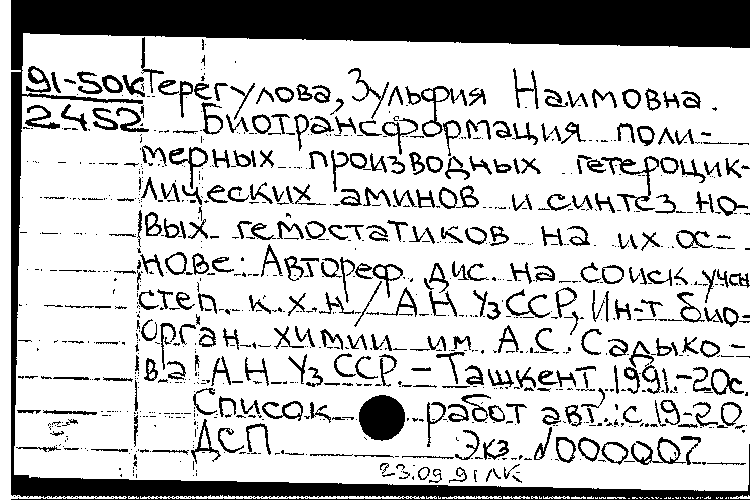 91-50К Терегулова, Зульфия Наимовна.
2452 Биотрансформация поли-
мерных производных гетероцик-
лических аминов и синтез но-
вых гемостатиков на их ос-
нове: Автореф. дис. на соиск учен
степ. к.х.н / АН УзССР, Ин-т био-
орган. химии им. А.С. Садыко-
ва АН УзССР. - Ташкент, 1991.-20с.
Список работ авт.: с.19-20.
ДСП. Экз. №000007
23.09.91 ЛК